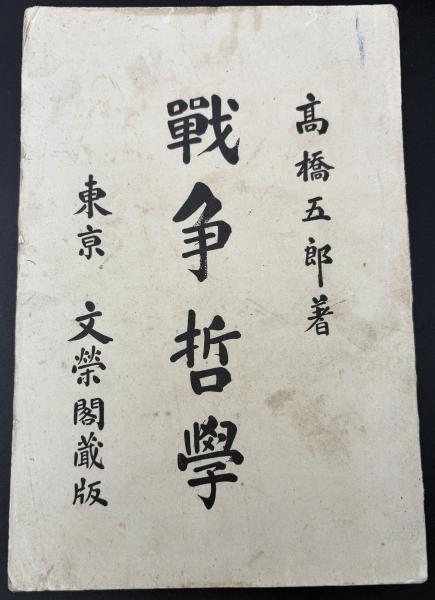 高橋五郎著
戰争哲學
東亰 文榮閣藏版